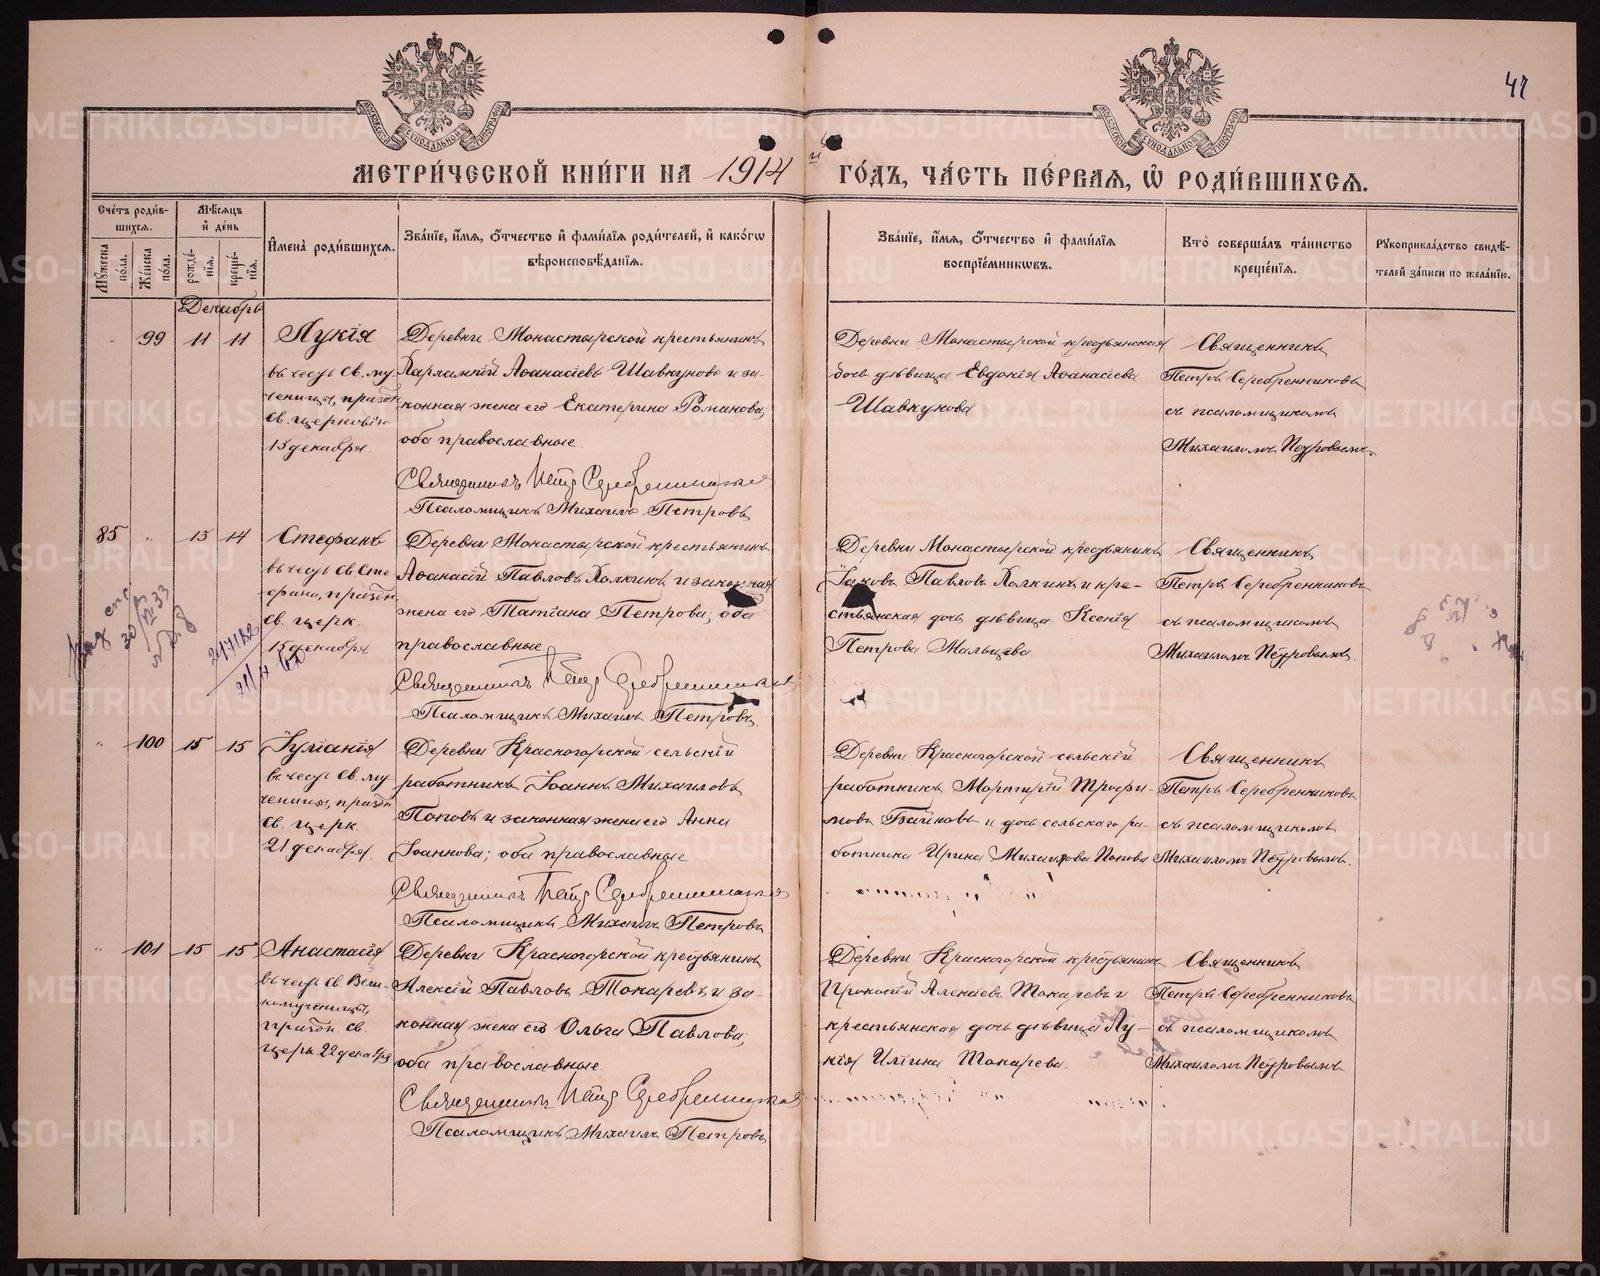 47
МЕТРИ́ЧЕСКОЙ КНИ́ГИ НА 1914 й ГО́ДЪ, ЧА́СТЬ ПЕ́РВАЯ, Ѡ РОДИ́ВШИХСЯ.
Сче́тъ роди́в-
шихся.
Му́жеска по́ла.
Же́нска по́ла.
Мѣ́сяцъ и де́нь
рожде́-
нія.
креще́-
нія.
Имена̀ роди́вшихся.
Зва́ніе, и́мя, о́тчество и фами́лія роди́телей, и како́гѡ
вѣроисповѣ́данія.
Зва́ніе, и́мя, о́тчество и фами́лія
воспріе́мникѡвъ.
Кто̀ соверша́лъ та́инство
креще́нія.
Рꙋкоприкла́дство свидѣ́-
телей за́писи по жела́нію.
Декабрь
99 11 11
Лукія
въ честь св. му-
ченицы, праздн
св. церковію
13 декабря.
Деревни Монастырской крестьянинъ
Харлампій Аѳанасіевъ Шавкуновъ и за-
конная жена его Екатерина Романова;
оба православные.
Священникъ Петръ Серебренниковъ
Псаломщикъ Михаилъ Петровъ
Деревни Монастырской крестьянская
дочь дѣвица Евдокія Аѳанасіева
Шавкунова
Священникъ
Петръ Серебренниковъ
съ псаломщикомъ
Михаиломъ Петровымъ.
85 " 13 14
Стефанъ
въ честь св Сте
фана, праздн.
св. церк.
15 декабря
Деревни Монастырской крестьянинъ
Аѳанасій Павловъ Холкинъ и законная
жена его Татіана Петрова; оба
православные
Священникъ Петръ Серебренниковъ
Псаломщикъ Михаилъ Петровъ.
Деревни Монастырской крестьянинъ
Іаковъ Павловъ Холкинъ и кре-
стьянская дочь дѣвица Ксенія
Петрова Мальцева
Священникъ
Петръ Серебренниковъ
съ псаломщикомъ
Михаиломъ Петровымъ.
" 100 15 15
Іуліанія
въ честь св. му
ченицы, праздн
св. церк.
21 декабря.
Деревни Красногорской сельскій
работникъ Іоаннъ Михаиловъ
Поповъ и законная жена его Анна
Іоаннова; оба православные
Священникъ Петръ Серебренниковъ
Псаломщикъ Михаилъ Петровъ
Деревни Красногорской сельскій
работникъ Мартирій Трофи-
мовъ Байновъ и дочь сельскаго ра-
ботника Ирина Михаилова Попова
Священникъ
Петръ Серебренниковъ
съ псаломщикомъ
Михаиломъ Петровымъ.
" 101 15 15
Анастасія
въ честь св Вели-
комученицы,
праздн св.
церк 22 декабря
Деревни Красногорской крестьянинъ
Алексій Павловъ Токаревъ и за-
конная жена его Ольга Павлова;
оба православные.
Священникъ Петръ Серебренниковъ
Псаломщикъ Михаилъ Петровъ
Деревни Красногорской крестьянинъ
Прокопій Алексіевъ Токаревъ и
крестьянская дочь дѣвица Лу-
кія Иліина Токарева.
Священникъ
Петръ Серебренниковъ
съ псаломщикомъ
Михаиломъ Петровымъ
METRIKI.GASO-URAL.RU